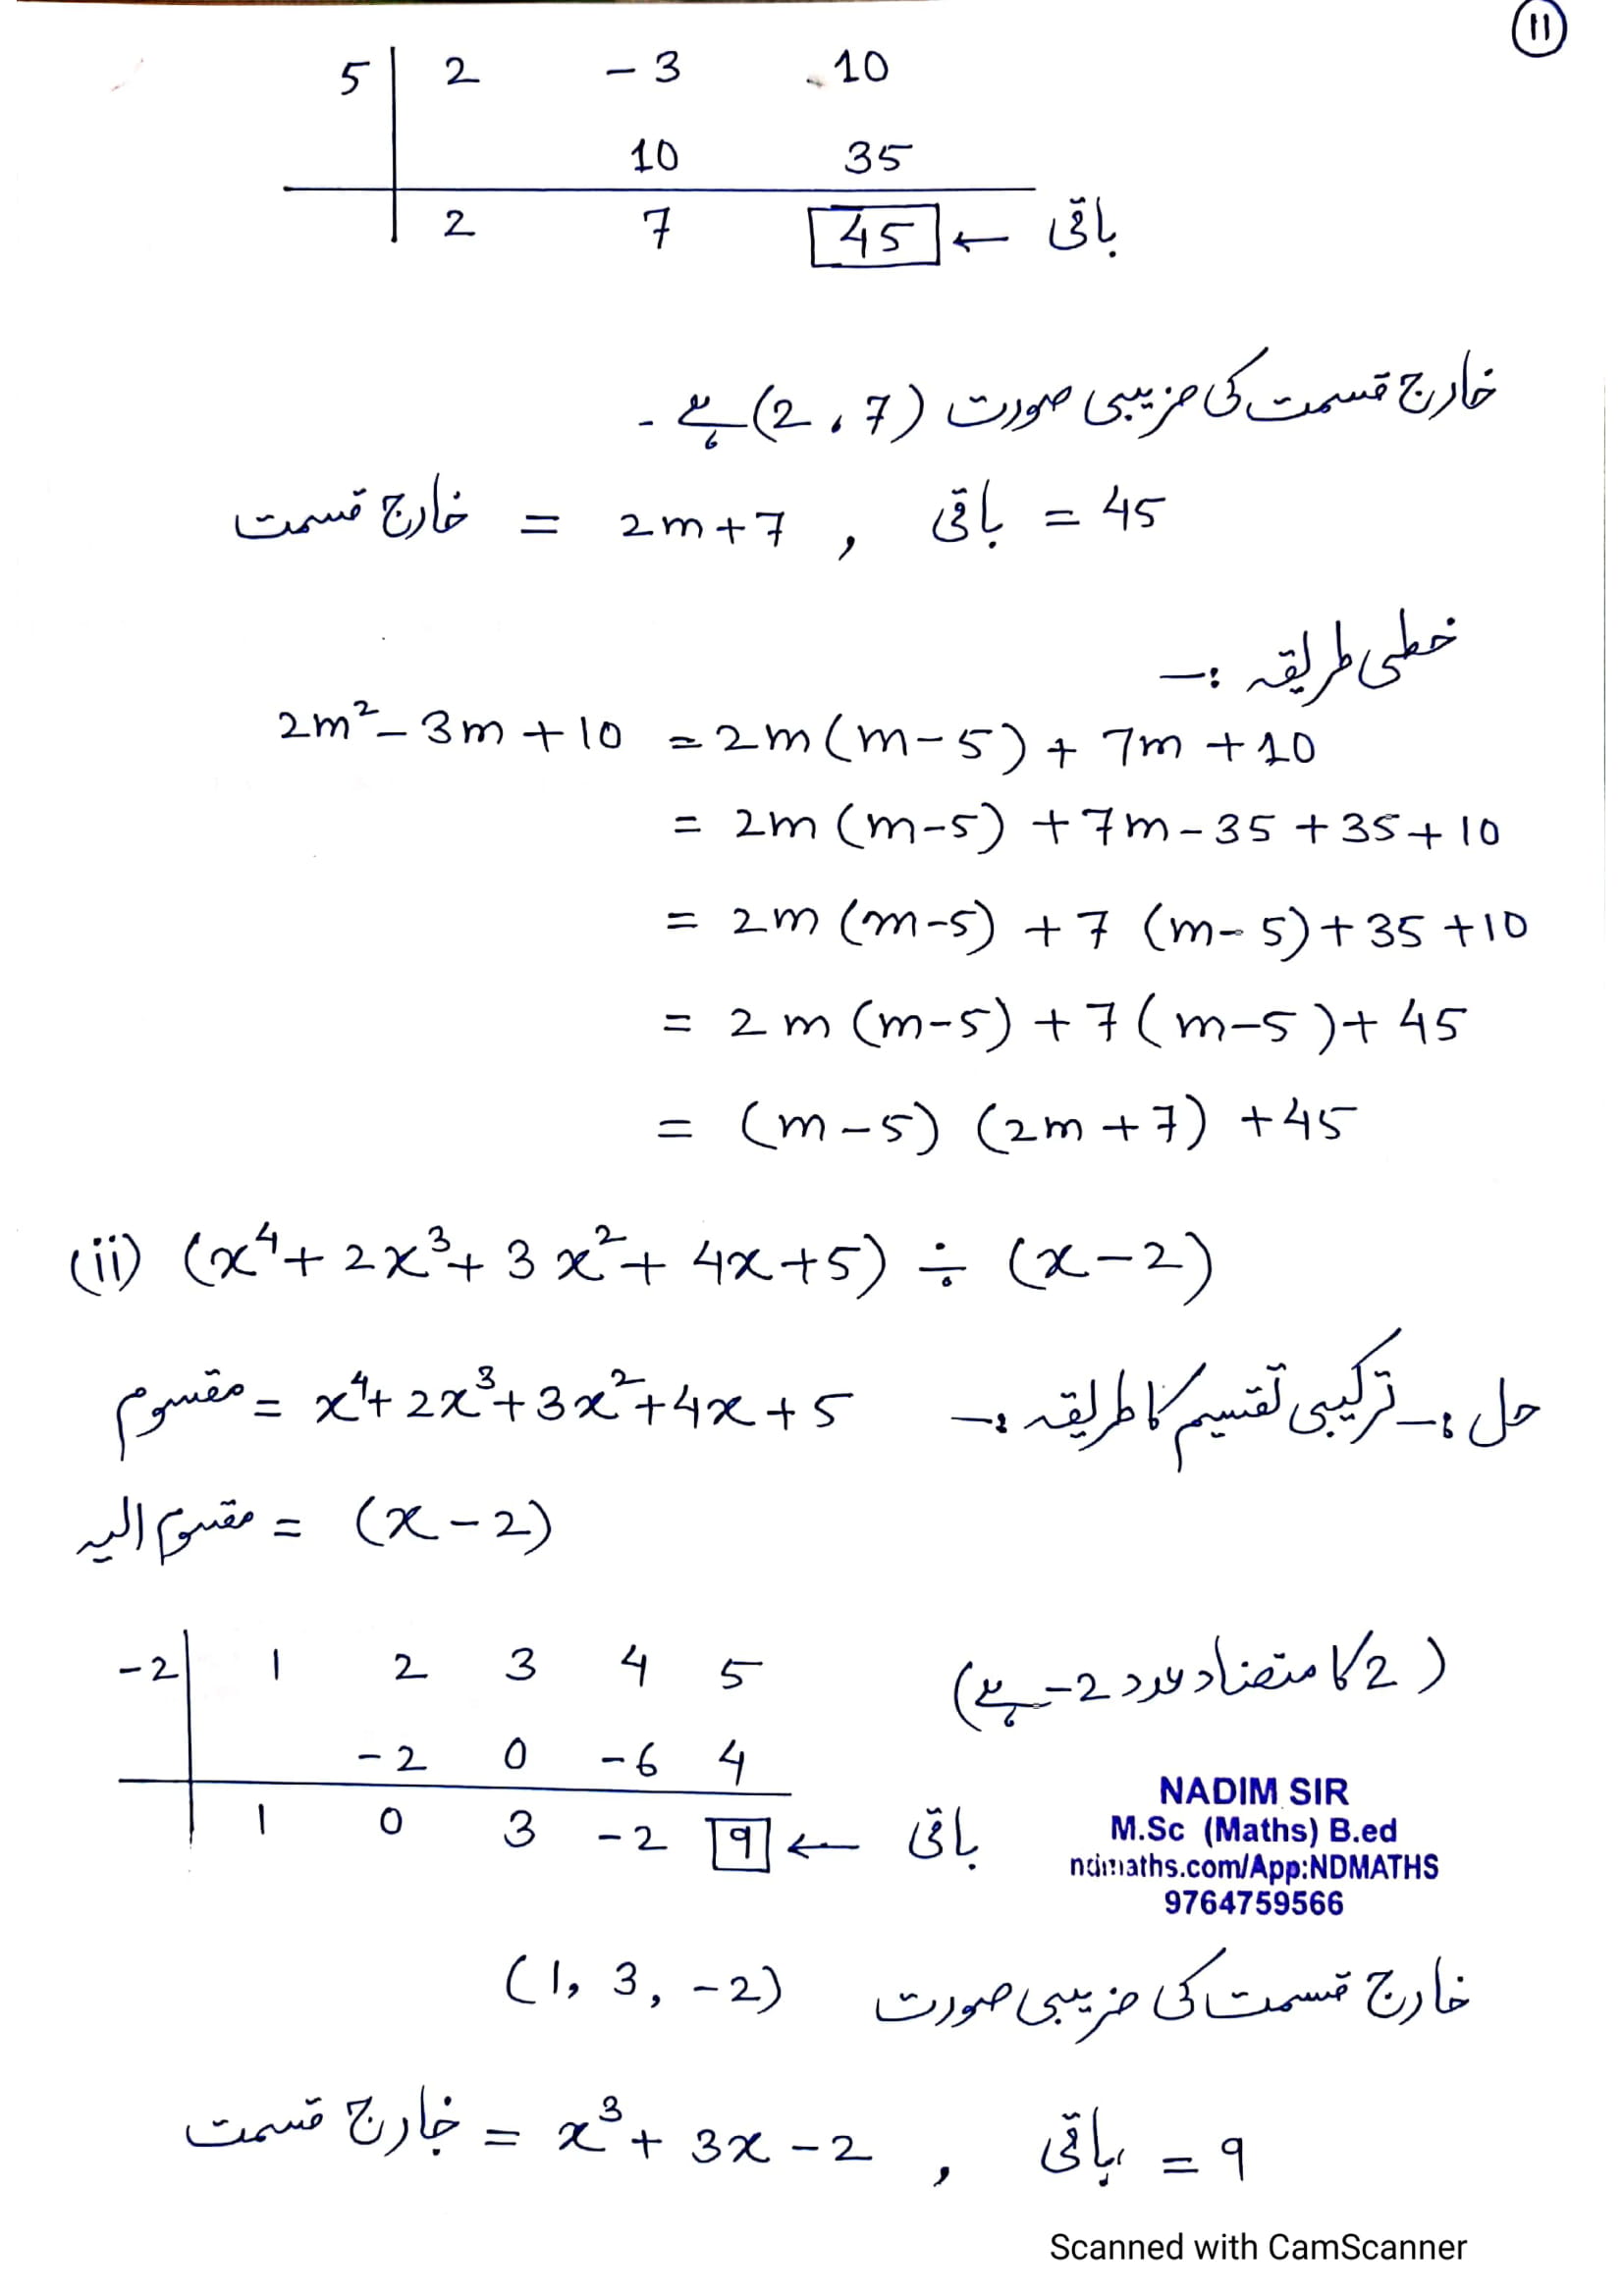 11
5 | 2 - 3 10
10 35
2 7 45 ← باقی
خارج قسمت کی ضریبی صورت (2 ، 7) ہے ۔
خارج قسمت = 2m+7 , باقی = 45
خطی طریقہ :—
2m² - 3m + 10 = 2m (m - 5) + 7m + 10
= 2m (m-5) + 7m - 35 + 35 + 10
= 2m (m-5) + 7 (m-5) + 35 + 10
= 2m (m-5) + 7 (m-5) + 45
= (m-5) (2m+7) + 45
(ii) (x⁴ + 2x³ + 3x² + 4x + 5) ÷ (x - 2)
حل :— ترکیبی تقسیم کا طریقہ :— مقسوم = x⁴ + 2x³ + 3x² + 4x + 5
مقسوم الیہ = (x - 2)
-2 | 1 2 3 4 5 (2 کا متضاد عدد 2- ہے)
-2 0 -6 4
1 0 3 -2 9 ← باقی
NADIM SIR
M.Sc (Maths) B.ed
ndmaths.com/App:NDMATHS
9764759566
خارج قسمت کی ضریبی صورت (1, 3, -2)
خارج قسمت = x³ + 3x - 2 , باقی = 9
Scanned with CamScanner